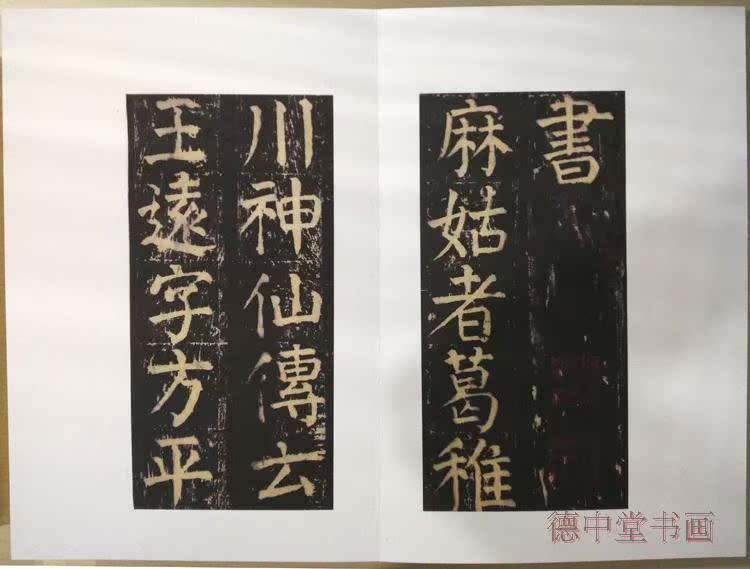 書
麻姑者葛稚
川神仙傳云
王遠字方平
德中堂书画